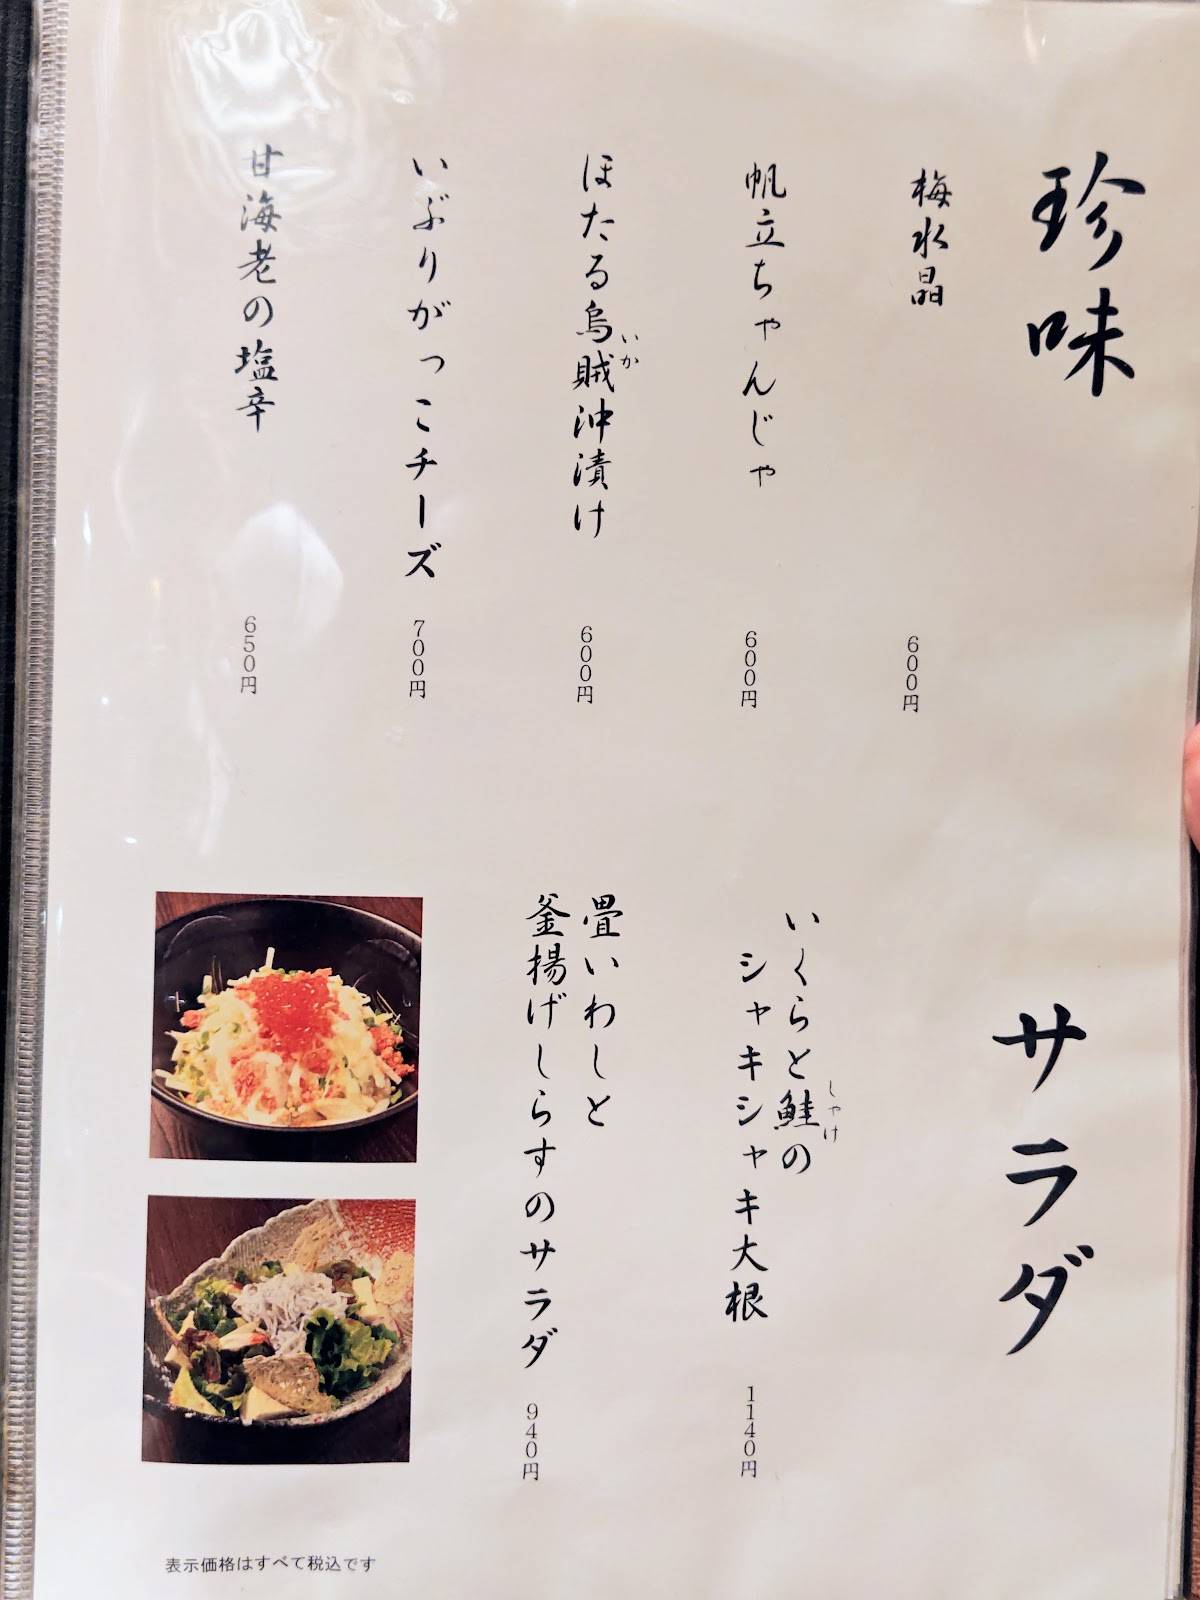 珍味
梅水晶
600円
帆立ちゃんじゃ
600円
ほたる烏賊沖漬け
いか
600円
いぶりがっこチーズ
700円
甘海老の塩辛
650円
サラダ
いくらと鮭の
しゃけ
シャキシャキ大根
1140円
畳いわしと
釜揚げしらすのサラダ
940円
表示価格はすべて税込です